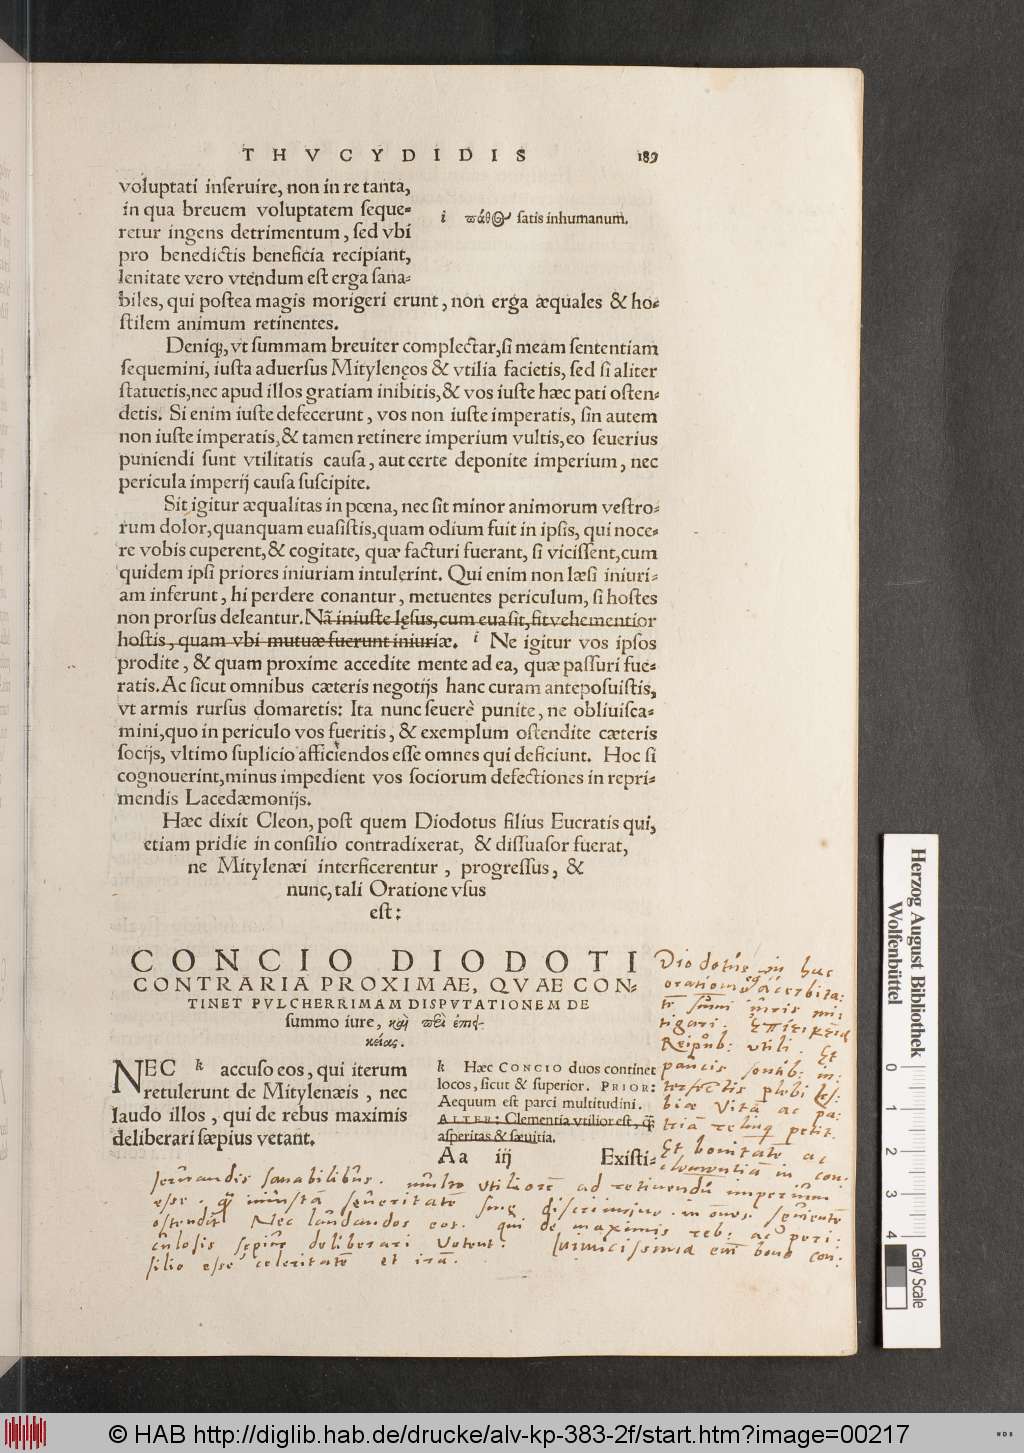 THVCYDIDIS 189
voluptati inseruire, non in re tanta,
in qua breuem voluptatem seque-
retur ingens detrimentum, sed vbi
pro benedictis beneficia recipiant,
lenitate vero vtendum est erga sana-
i πάθος satis inhumanum.
biles, qui postea magis morigeri erunt, non erga æquales & ho-
stilem animum retinentes.
Deniq;, vt summam breuiter complectar, si meam sententiam
sequemini, iusta aduersus Mitylenęos & vtilia facietis, sed si aliter
statuetis, nec apud illos gratiam inibitis, & vos iuste hæc pati osten-
detis. Si enim iuste defecerunt, vos non iuste imperatis, sin autem
non iuste imperatis, & tamen retinere imperium vultis, eo seuerius
puniendi sunt vtilitatis causa, aut certe deponite imperium, nec
pericula imperij causa suscipite.
Sit igitur æqualitas in pœna, nec sit minor animorum vestro-
rum dolor, quanquam euasistis, quam odium fuit in ipsis, qui noce-
re vobis cuperent, & cogitate, quæ facturi fuerant, si vicissent, cum
quidem ipsi priores iniuriam intulerint. Qui enim non læsi iniuri-
am inferunt, hi perdere conantur, metuentes periculum, si hostes
non prorsus deleantur. Nã iniuste lęsus, cum euasit, fit vehementior
hostis, quam vbi mutuæ fuerunt iniuriæ. i Ne igitur vos ipsos
prodite, & quam proxime accedite mente ad ea, quæ passuri fue-
ratis. Ac sicut omnibus cæteris negotijs hanc curam anteposuistis,
vt armis rursus domaretis: Ita nunc seuerè punite, ne obliuisca-
mini, quo in periculo vos fueritis, & exemplum ostendite cæteris
socijs, vltimo suplicio afficiendos esse omnes qui deficiunt. Hoc si
cognouerint, minus impedient vos sociorum defectiones in repri-
mendis Lacedæmonijs.
Hæc dixit Cleon, post quem Diodotus filius Eucratis qui,
etiam pridie in consilio contradixerat, & dissuasor fuerat,
ne Mitylenæi interficerentur, progressus, &
nunc, tali Oratione vsus
est:
CONCIO DIODOTI
CONTRARIA PROXIMAE, QVAE CON-
TINET PVLCHERRIMAM DISPVTATIONEM DE
summo iure, καὶ περὶ ἐπιει-
κείας.
NEC k accuso eos, qui iterum
retulerunt de Mitylenæis, nec
laudo illos, qui de rebus maximis
deliberari sæpius vetant.
k Hæc CONCIO duos continet
locos, sicut & superior. PRIOR:
Aequum est parci multitudini.
ALTER: Clementia vtilior est, q̃
asperitas & sæuitia.
Aa iij Existi-
Diodotus in hac
oratione acerbita-
tẽ summi iuris mi-
tigari: ἐπιείκειαν
Reipub: utili. Et
paucis sontib: in-
terfectis plebi Les-
biæ vitã ac pa-
triã relinq petit.
Et bonitatẽ ac
clementiã in con-
seruandis sanabilibus. multo utiliorẽ ad retinendũ imperium
esse. q̃ iniustã seueritatẽ sine discrimine in omnes seuientẽ
ostendit Nec laudandos eos. qui de maximis reb: ac peri-
culosis sepius deliberari vetent. Inimicissima em̃ bono con-
silio esse celeritatẽ et irã.
Herzog August Bibliothek
Wolfenbüttel
0 1 2 3 4
Gray Scale
© HAB http://diglib.hab.de/drucke/alv-kp-383-2f/start.htm?image=00217